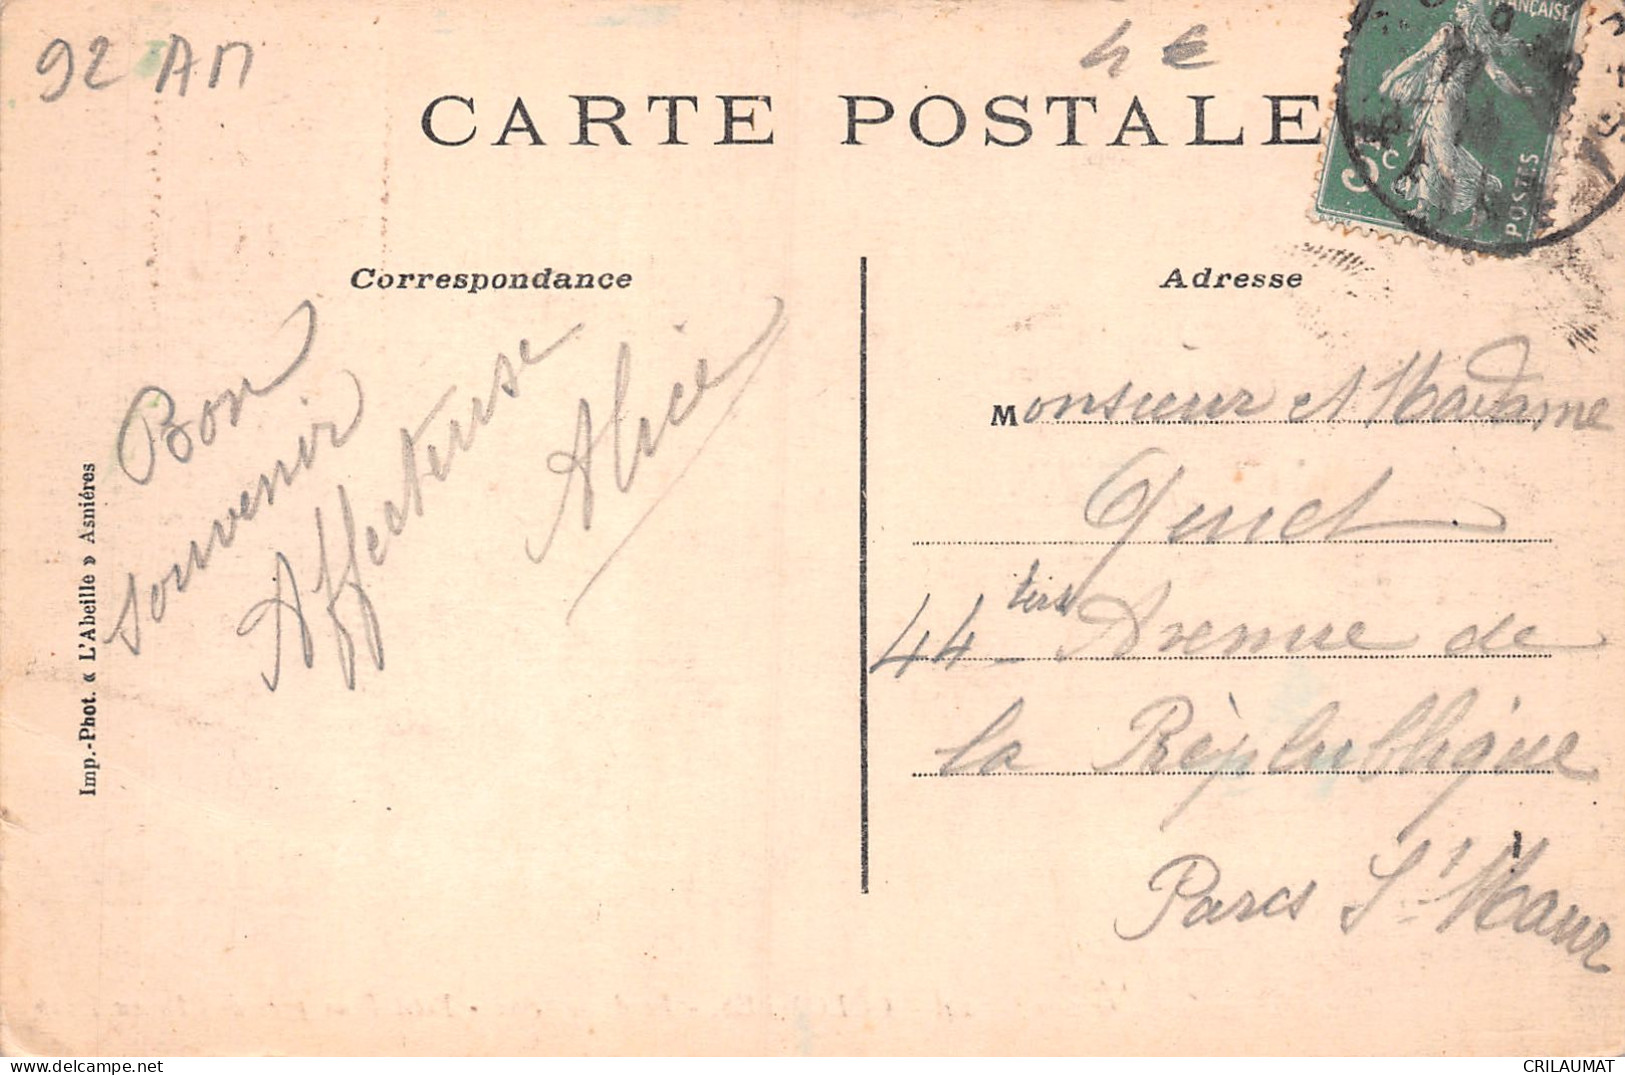 92 AM
4 €
CARTE POSTALE
FRANÇAISE
5c
POSTES
Correspondance
Adresse
Bon
souvenir
Affectueuse
Alice
Monsieur et Madame
Quiet
44 ters Avenue de
la Rèplublique
Parcs St Maur
Imp.-Phot. « L'Abeille » Asnières
CRILAUMAT